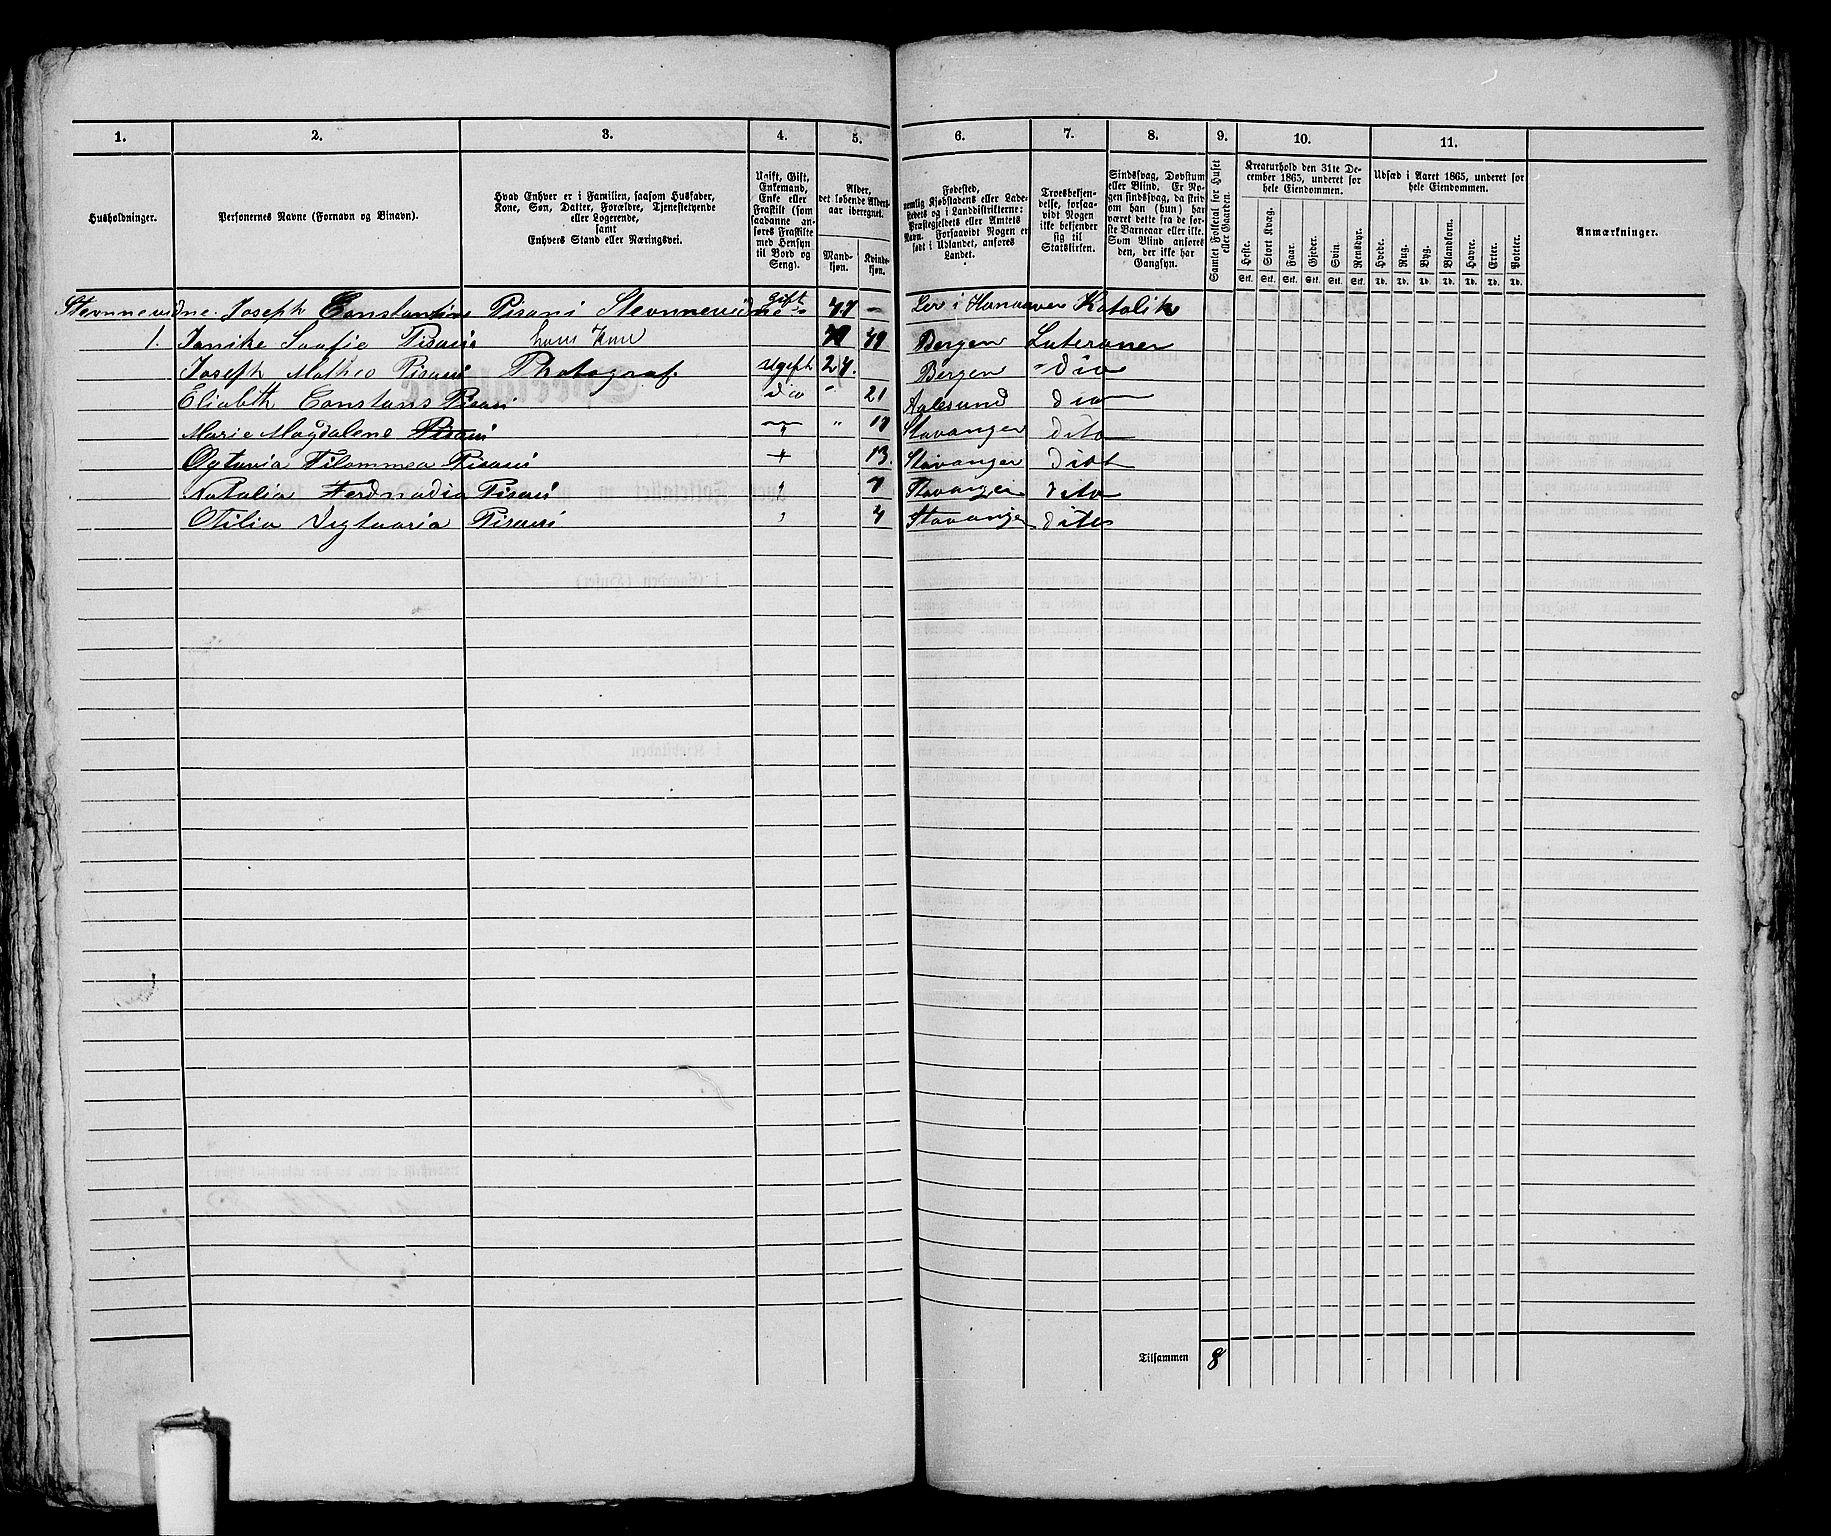 1. 2. 3. 4. 5. 6. 7. 8. 9. 10. 11.
Husholdninger.
Personernes Navne (Fornavn og Binavn).
Hvad Enhver er i Familien, saasom Husfader,
Kone, Søn, Datter, Forældre, Tjenestetyende
eller Logerende,
samt
Enhvers Stand eller Næringsvei.
Ugift, Gift,
Enkemand,
Enke eller
Fraskilt (som
saadanne an-
føres Fraskilte
med Hensyn
til Bord og
Seng).
Alder,
det løbende Alders-
aar iberegnet.
Mand-
kjøn.
Kvinde-
kjøn.
Fødested,
nemlig Kjøbstadens eller Lade-
stedets og i Landdistrikterne:
Præstegjeldets eller Amtets
Navn. Forsaavidt Nogen er
født i Udlandet, anføres
Landet.
Troesbekjen-
delse, forsaa-
vidt Nogen
ikke bekjender
sig til
Statskirken.
Sindssvag, Døvstum
eller Blind. Er No-
gen sindssvag, da strid
om han (hun) har
været dette fra de for-
ste Barneaar eller ikke.
Som Blind anføres
den, der ikke har
Gangsyn.
Samlet Folketal for Huset
eller Gaarden.
Kreaturhold den 31te De-
cember 1865, underet for
hele Eiendommen.
Heste. Stort Kvæg. Faar. Gjeder. Svin. Rensdyr.
Stk. Stk. Stk. Stk. Stk. Stk.
Udsæd i Aaret 1865, underet for
hele Eiendommen.
Hvede. Rug. Byg. Blandkorn. Havre. Erter. Poteter.
Td. Td. Td. Td. Td. Td. Td.
Anmærkninger.
Stevnnevidne. Joseph Constantine Pisani Stevnnevidne gift 77 - Ler i Hanaaver Katolik
1. Janike Saafie Pisani hans Kone 49 Bergen Luteraner
Joseph Matheo Pisani Photograf. ugift 27. Bergen " dio
Eliabeth Constans Pisani dio " 21 Aalesund dio
Marie Magdalene Pisani " " 17 Stavanger dito
Ogtavia Filommea Pisani " 13. Stavanger dito
Natalia Ferdnadia Pisani " 7 Stavanger dito
Otilia Vigtuaria Pisani " 4 Stavanger dito
Tilsammen 8